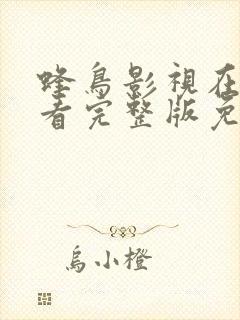 蜂鳥影視在
看完整版免
烏小橙